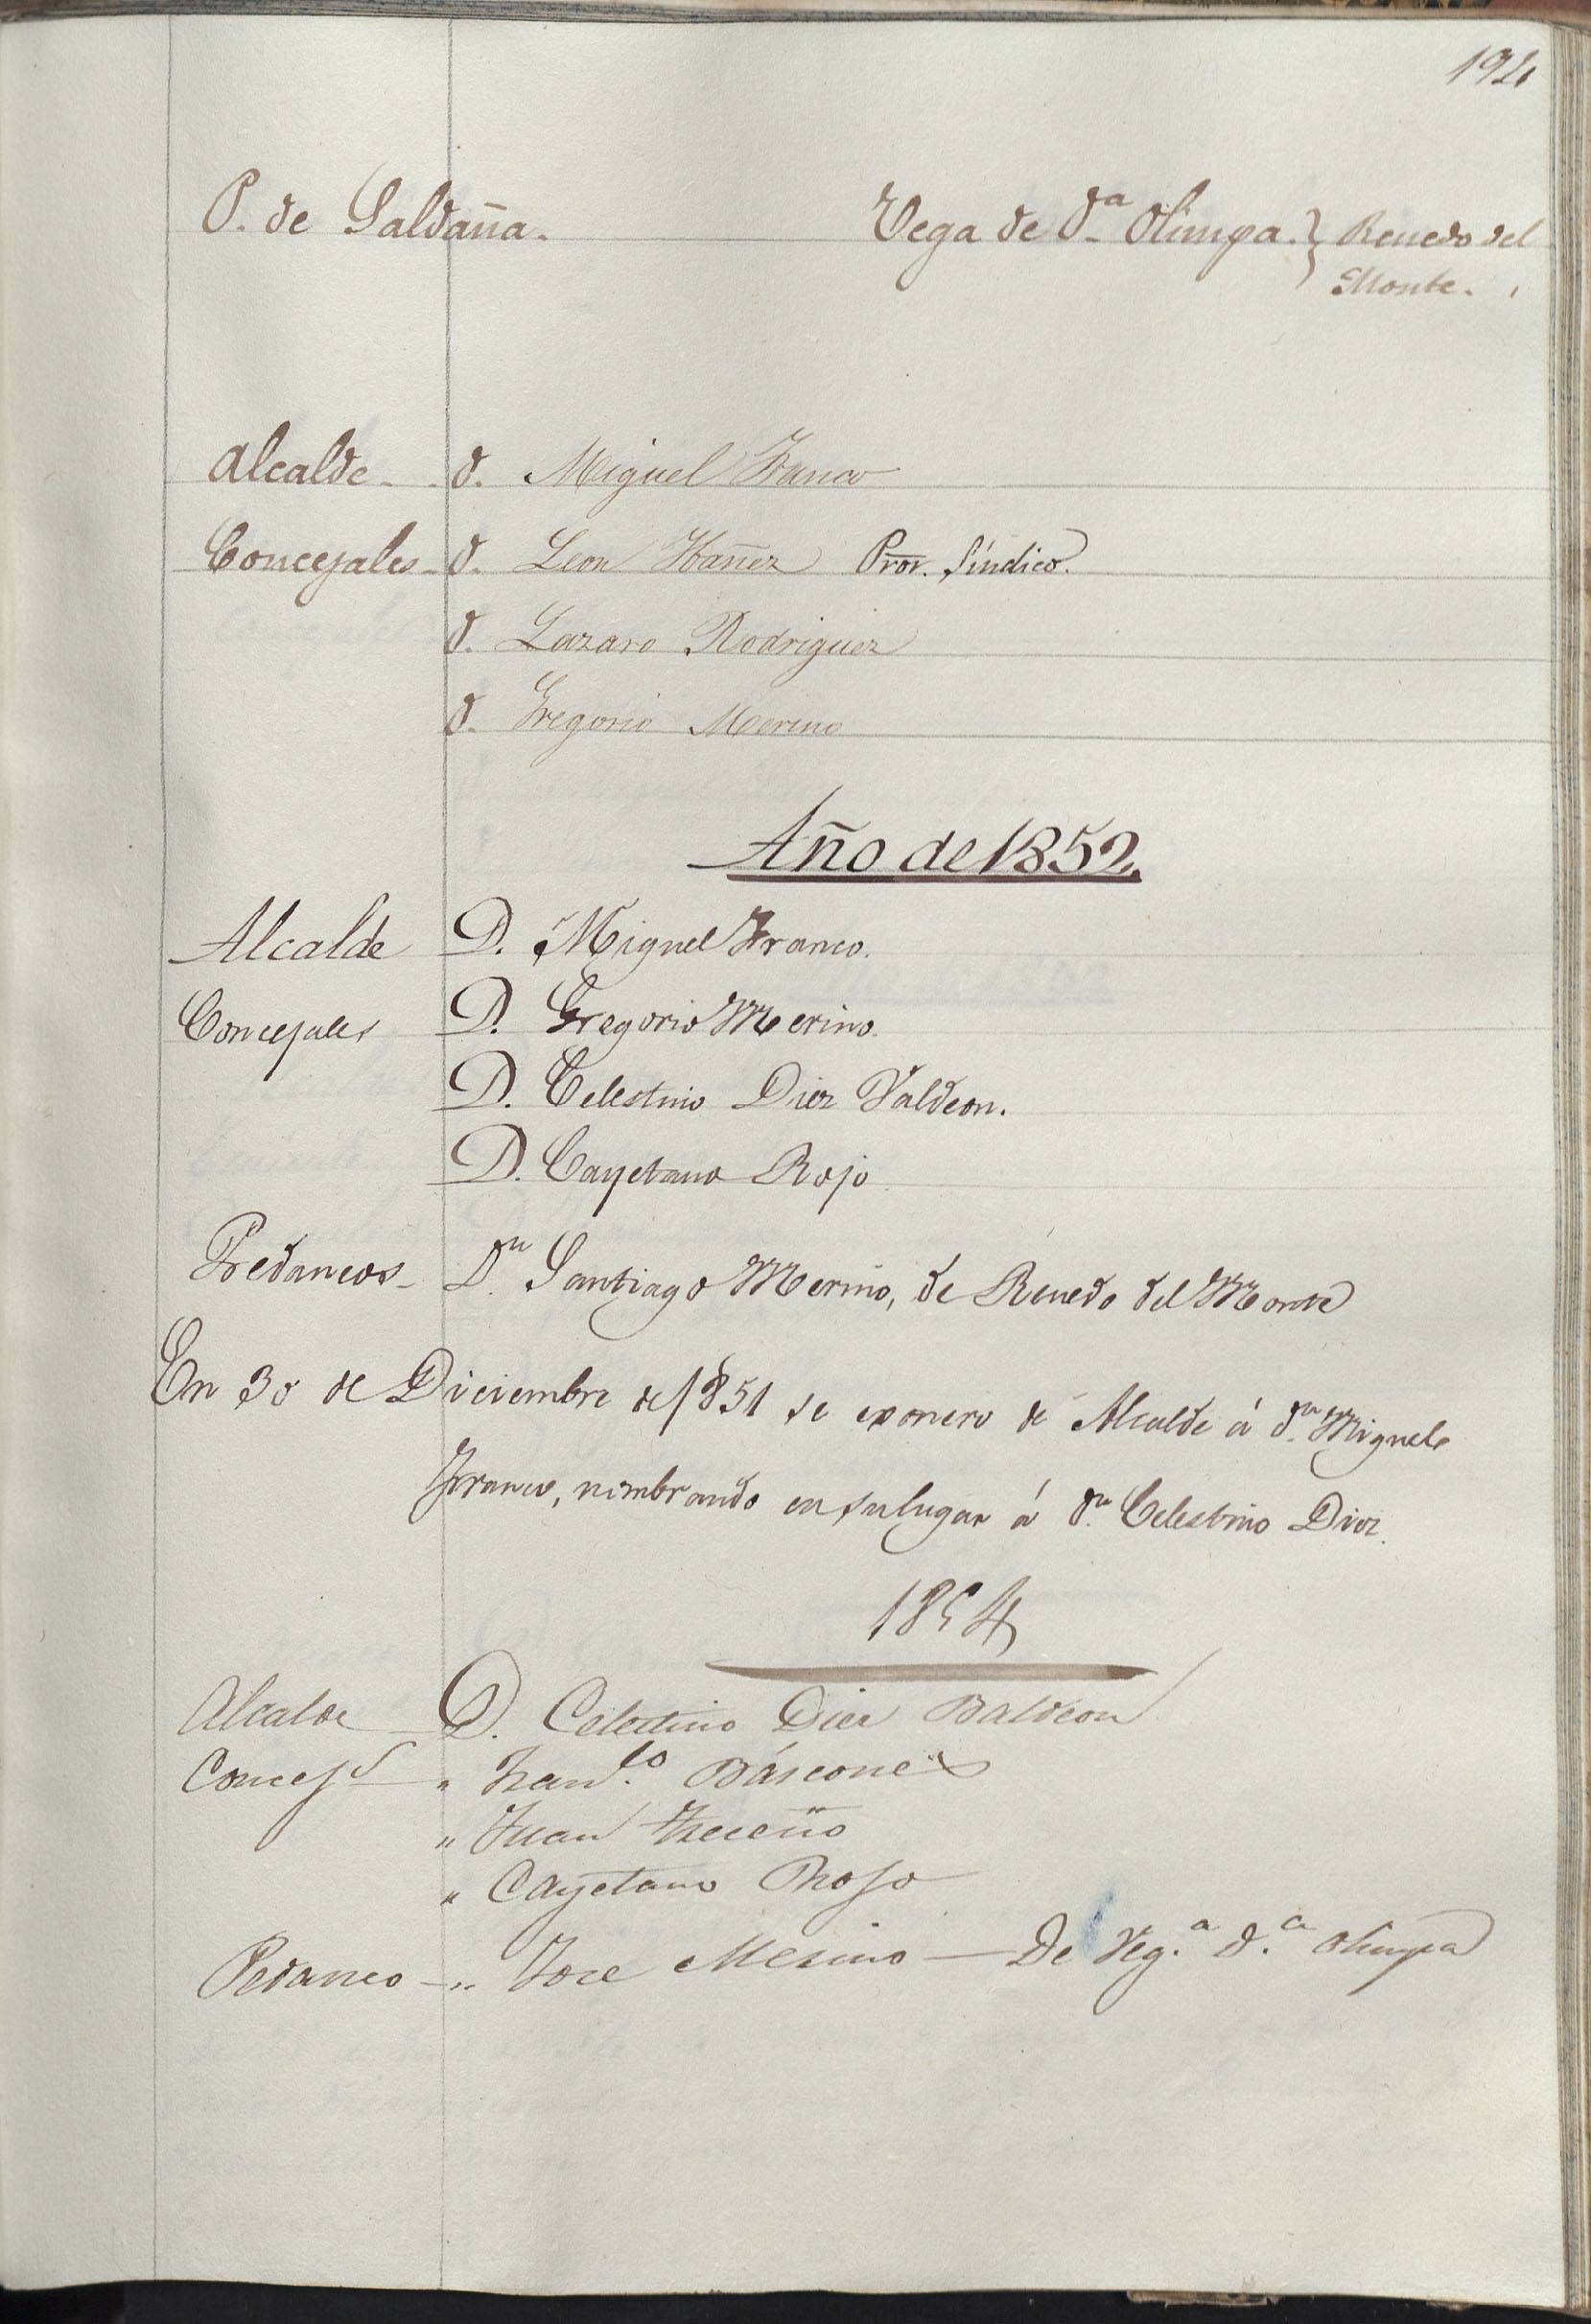 194
P. de Saldaña.
Vega de D.ª Olimpa. } Renedo del
Monte.
Alcalde - D. Miguel Franco
Concejales - D. Leon Ibañez Pror. Síndico.
D. Lazaro Rodriguez
D. Gregorio Merino
Año de 1852.
Alcalde D. Miguel Franco.
Concejales D. Gregorio Merino.
D. Celestino Diez Valdeon.
D. Cayetano Rojo
Predaneos - D.n Santiago Merino, de Renedo del Monte
En 30 de Diciembre de 1851 se exonero de Alcalde á d.n Miguel
Franco, nombrando en su lugar á d.n Celestino Diez.
1854
Alcalde D. Celestino Diez Baldeon
Concej.s " Fran.co Báscones
" Juan Treceño
" Cayetano Rojo
Pedaneo - " Jose Merino - De Veg.ª d.ª Olimpa